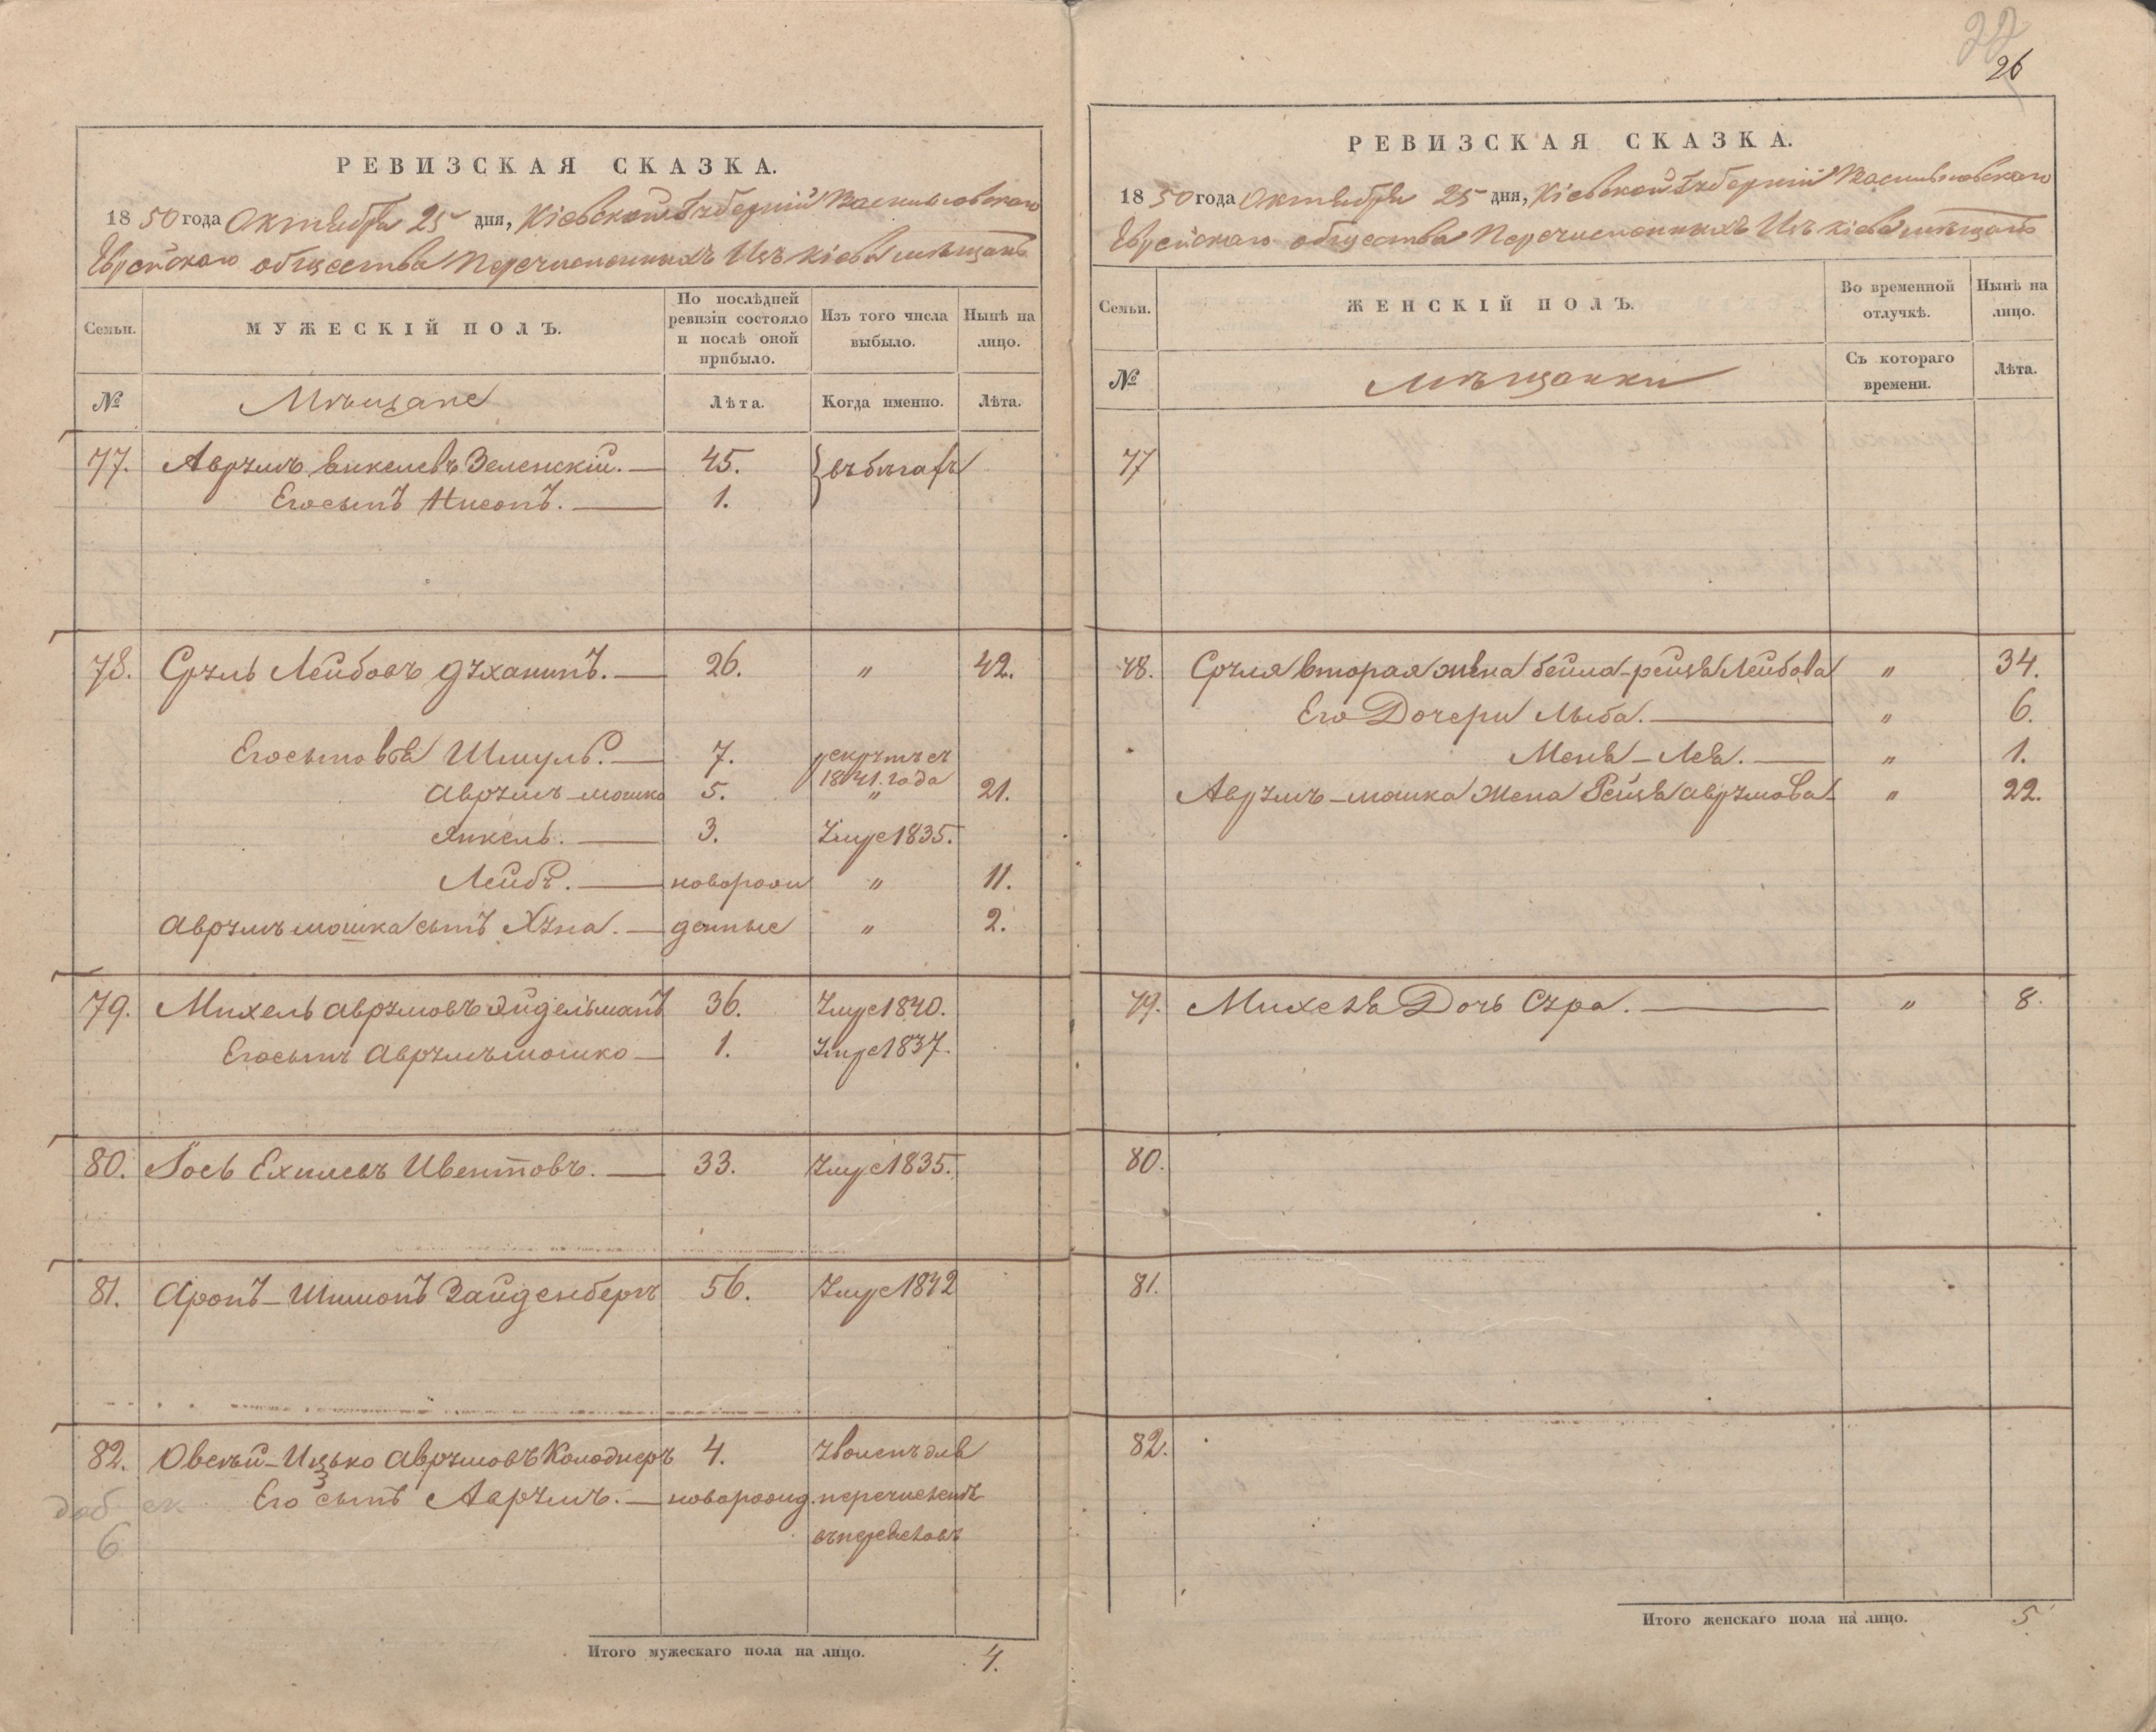 26
РЕВИЗСКАЯ СКАЗКА.
1850 года Октября 25 дня, Кіевской Губерніи Васильковскаго
Еврейскаго общества Перечисленныхъ Изъ Кіева мѣщанъ
Семьи.
МУЖЕСКІЙ ПОЛЪ.
По послѣдней ревизіи состояло и послѣ оной прибыло.
Изъ того числа выбыло.
Нынѣ на лицо.
№
Мѣщане
Лѣта.
Когда именно.
Лѣта.
77. Аврумъ Зеленскій. 45. въ бѣгахъ
Его сынъ Нисонъ. 1.
78. Сруль Лейбовъ Духанинъ. 26. " 42.
Его сыновья Шмуль. 7. рекрутъ съ 1841. года
Аврумъ-мошко 5. " 21.
Янкель. 3. Умре 1835.
Лейбъ. новорож " 11.
Аврумъ мошка сынъ Хуна. денные " 2.
79. Михель Аврумовъ Эйдельманъ 36. Умре 1840.
Его сынъ Аврумъ мошко 1. Умре 1837.
80. Іось Ехилевъ 33. Умре 1835.
81. Аронъ-Шимонъ Зайденбергъ 56. Умре 1842
82. Овсѣй-Ицько Аврумовъ Колоднеръ 4. Уволенъ для
Его сынъ Аврумъ. новорожд. перечисленія
6
Итого мужескаго пола на лицо. 4.
РЕВИЗСКАЯ СКАЗКА.
1850 года Октября 25 дня, Кіевской Губерніи Васильковскаго
Еврейскаго общества Перечисленныхъ Изъ Кіева мѣщанъ
Семьи.
ЖЕНСКІЙ ПОЛЪ.
Во временной отлучкѣ.
Нынѣ на лицо.
№
Мѣщанки
Съ котораго времени.
Лѣта.
77
78. Сруля вторая жена Бейла-рейзя Лейбова " 34.
Его Дочери Лыба. " 6.
Меня-Лея. " 1.
Аврумъ-мошка Жена Рейзя Аврумова " 22.
79. Михеля Дочь Сура. " 8.
80.
81.
82.
Итого женскаго пола на лицо. 5